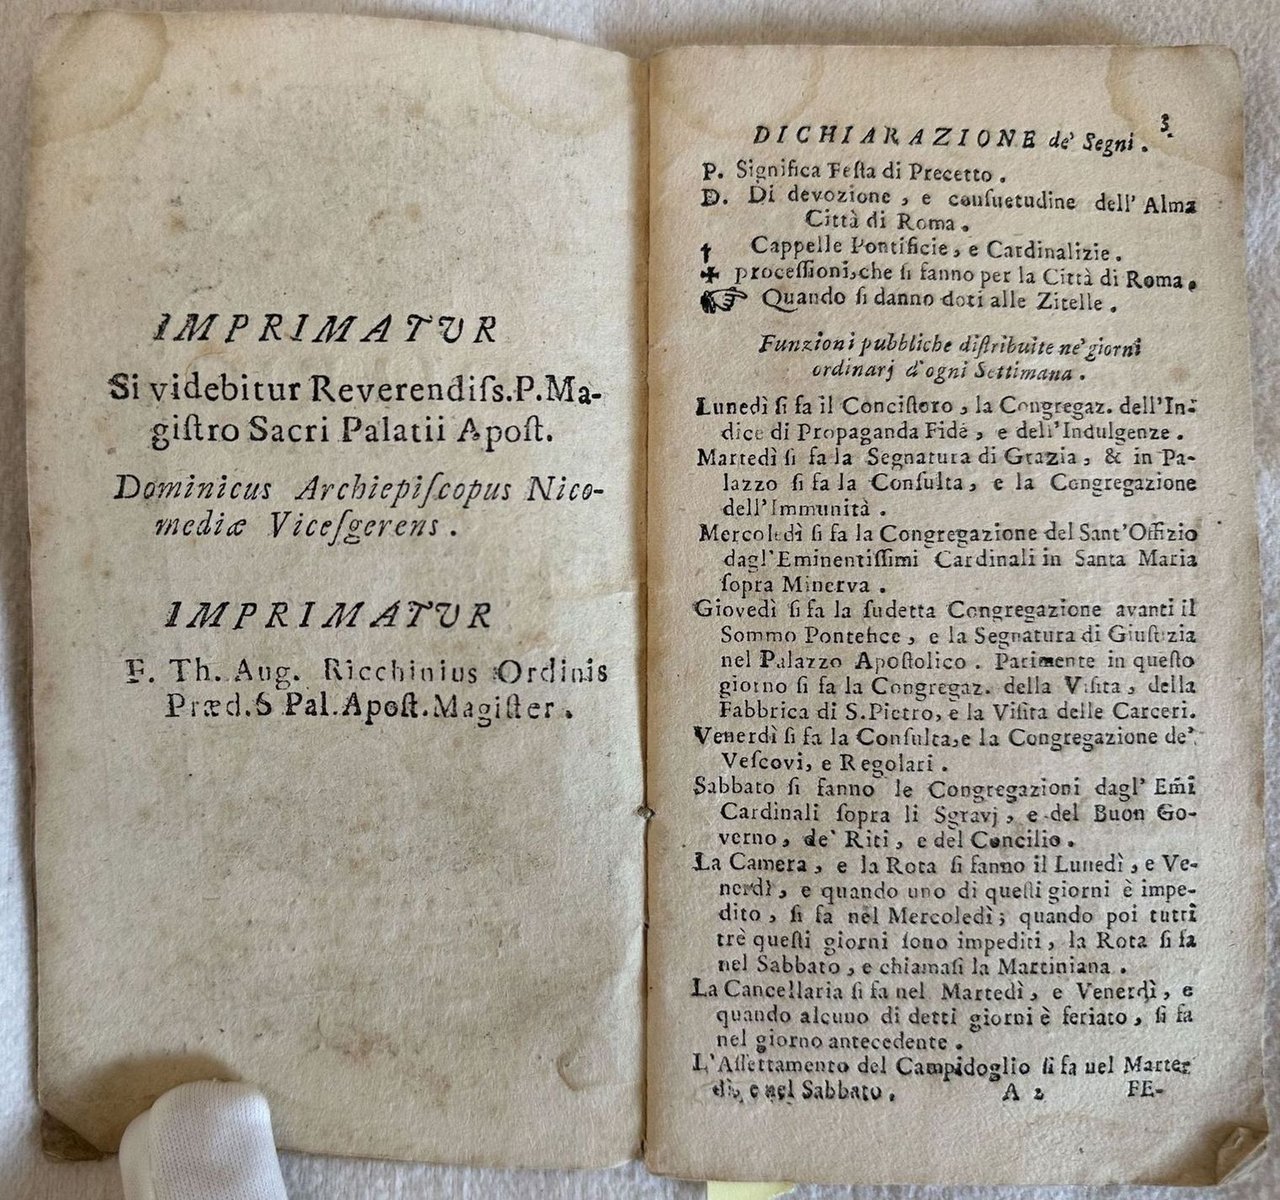 IMPRIMATVR
Si videbitur Reverendiſs.P.Ma-
giſtro Sacri Palatii Apoſt.
Dominicus Archiepiſcopus Nico-
mediæ Viceſgerens .
IMPRIMATVR
F. Th. Aug. Ricchinius Ordinis
Præd.S Pal.Apoſt.Magiſter .
3.
DICHIARAZIONE de' Segni .
P. Significa Feſta di Precetto .
D. Di devozione , e conſuetudine dell' Alma
Città di Roma .
† Cappelle Pontificie , e Cardinalizie .
✠ proceſſioni,che ſi fanno per la Città di Roma .
☞ Quando ſi danno doti alle Zitelle .
Funzioni pubbliche diſtribuite ne' giorni
ordinarj d'ogni Settimana .
Lunedì ſi fa il Conciſtoro , la Congregaz. dell'In-
dice di Propaganda Fide , e dell'Indulgenze .
Martedì ſi fa la Segnatura di Grazia , & in Pa-
lazzo ſi fa la Conſulta , e la Congregazione
dell'Immunità .
Mercoledì ſi fa la Congregazione del Sant'Offizio
dagl'Eminentiſſimi Cardinali in Santa Maria
ſopra Minerva .
Giovedì ſi fa la ſudetta Congregazione avanti il
Sommo Pontefice , e la Segnatura di Giuſtizia
nel Palazzo Apoſtolico . Parimente in queſto
giorno ſi fa la Congregaz. della Viſita , della
Fabbrica di S.Pietro, e la Viſita delle Carceri.
Venerdì ſi fa la Conſulta,e la Congregazione de'
Veſcovi, e Regolari .
Sabbato ſi fanno le Congregazioni dagl' Em̃i
Cardinali ſopra li Sgravj , e del Buon Go-
verno , de' Riti , e del Concilio .
La Camera , e la Rota ſi fanno il Lunedì , e Ve-
nerdì , e quando uno di queſti giorni è impe-
dito , ſi fa nel Mercoledì ; quando poi tutti
trè queſti giorni ſono impediti , la Rota ſi fa
nel Sabbato , e chiamaſi la Martiniana .
La Cancellaria ſi fa nel Martedì , e Venerdì , e
quando alcuno di detti giorni è feriato , ſi fa
nel giorno antecedente .
L'Aſſettamento del Campidoglio ſi fa nel Marte-
dì, e nel Sabbato .
A 2 FE-